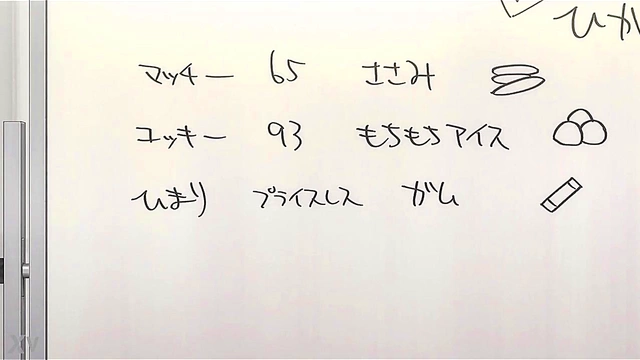 ひか
マッチー 65 ささみ
ユッキー 93 もちもちアイス
ひまり プライスレス ガム